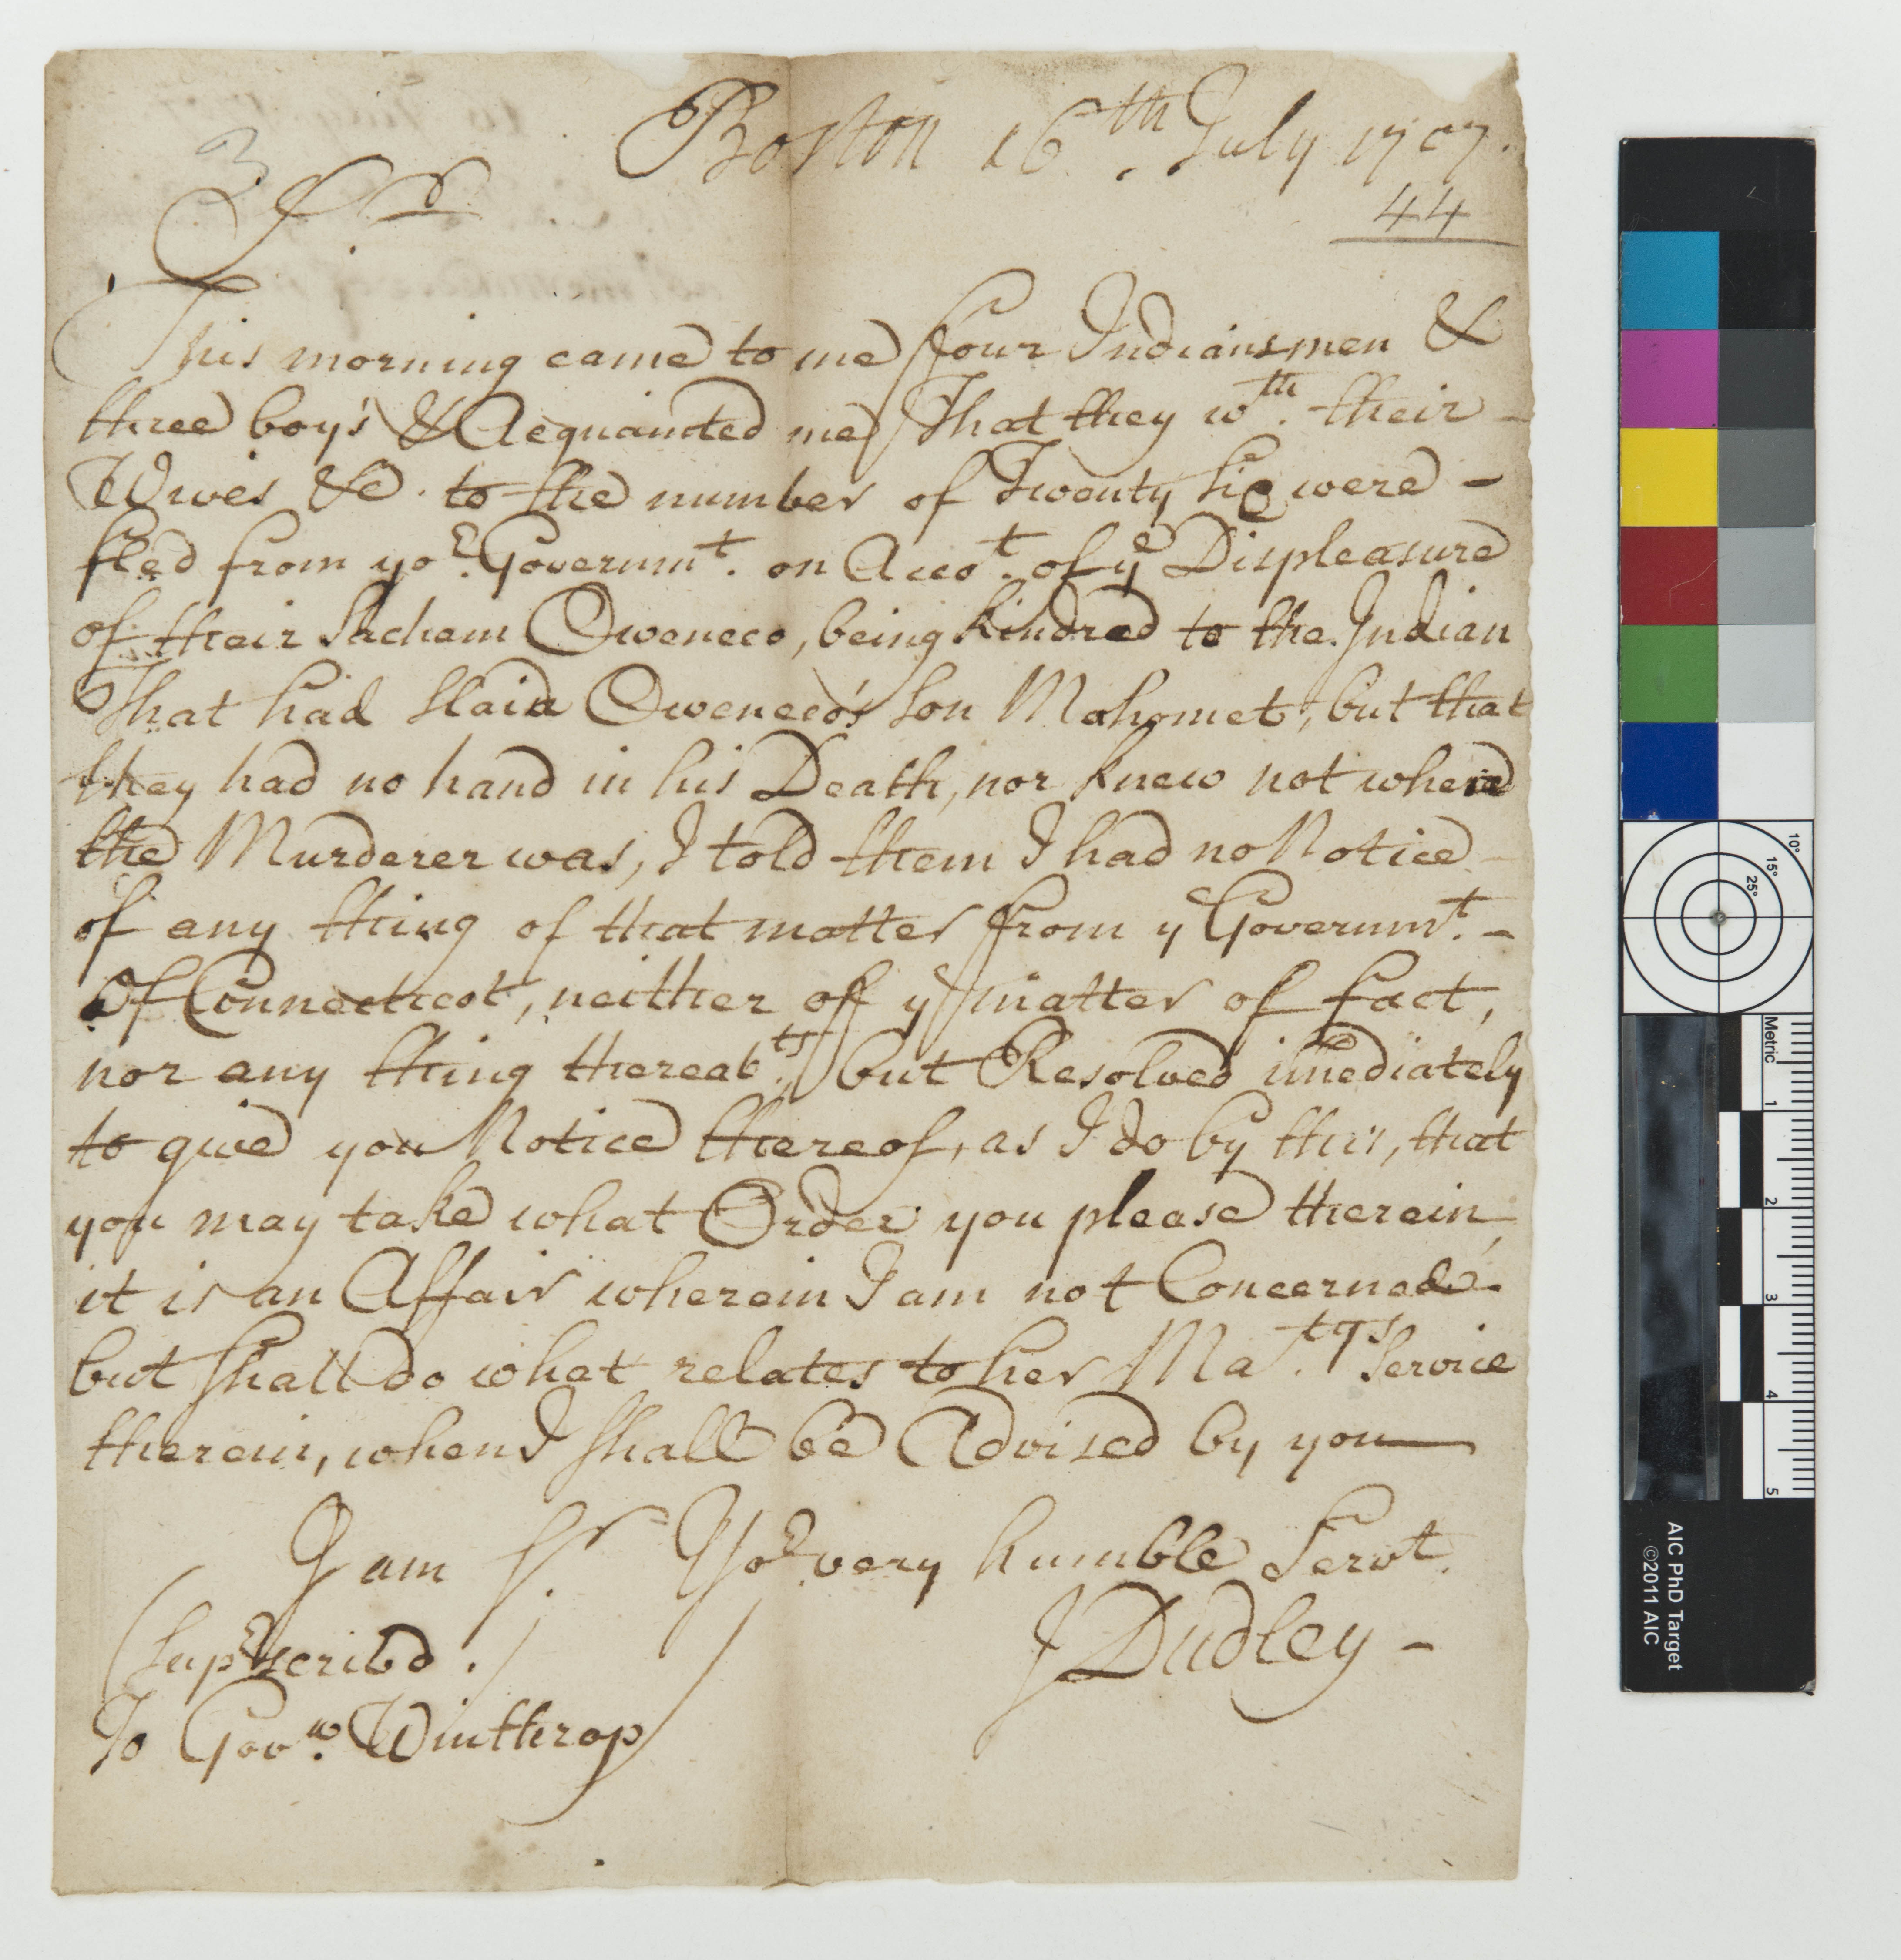 Boston 16th. July 1707.
3
44
Sr
This morning came to me four Indians men &
three boy's & Acquainted me That they wth. their
Wives &c. to the number of Twenty six were -
fled from yor. Governmt. on Accot. of ye Displeasure
of their Sachem Oweneco, being kindred to the Indian
That had slain Oweneco's son Mahomet, but that
they had no hand in his Death, nor knew not where
the Murderer was, I told them I had no Notice -
of any thing of that matter from ye Governmt. -
Of Connecticot, neither off ye matter of fact,
nor any thing thereabts. but Resolved imediately
to give you Notice thereof, as I do by this, that
you may take what Order you please therein,
it is an Affair wherein I am not Concerned.
but shall do what relates to her Matys. Service
therein, when I shall be Advised by you
I am Sr. Yor. very humble Servt.
J Dudley -
(Suprscribd.)
To Govr. Winthrop
10°
15°
25°
Metric
1
2
3
4
5
AIC PhD Target
©2011 AIC